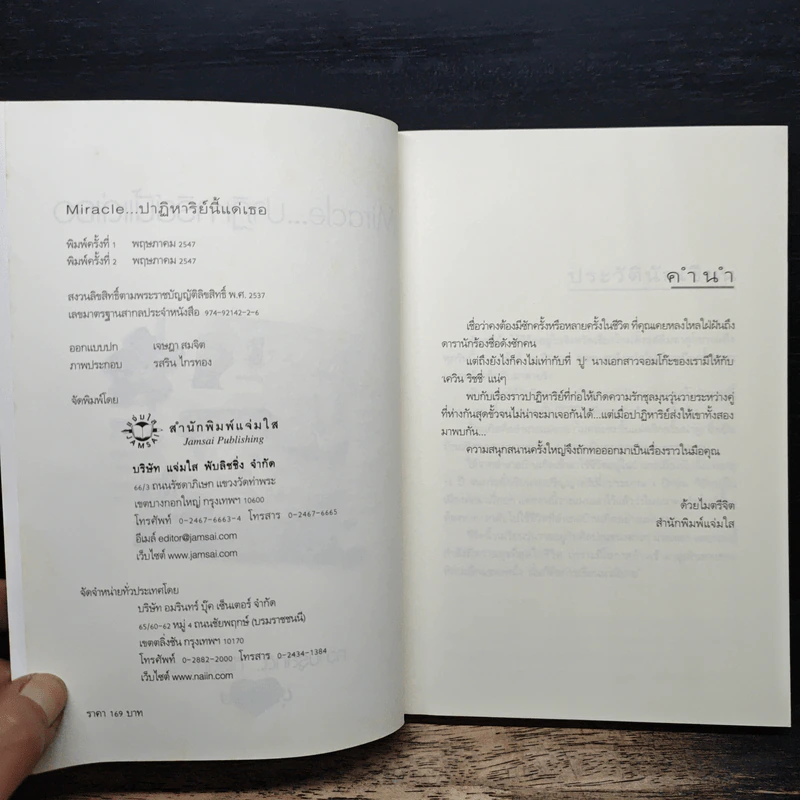 Miracle...ปาฏิหาริย์นี้แด่เธอ
พิมพ์ครั้งที่ 1 พฤษภาคม 2547
พิมพ์ครั้งที่ 2 พฤษภาคม 2547
สงวนลิขสิทธิ์ตามพระราชบัญญัติลิขสิทธิ์ พ.ศ. 2537
เลขมาตรฐานสากลประจำหนังสือ 974-92142-2-6
ออกแบบปก เจษฎา สมจิต
ภาพประกอบ รสริน ไกรทอง
จัดพิมพ์โดย
แจ่มใส
JAMSAI
สำนักพิมพ์แจ่มใส
Jamsai Publishing
บริษัท แจ่มใส พับลิชชิ่ง จำกัด
66/3 ถนนรัชดาภิเษก แขวงวัดท่าพระ
เขตบางกอกใหญ่ กรุงเทพฯ 10600
โทรศัพท์ 0-2467-6663-4 โทรสาร 0-2467-6665
อีเมล์ editor@jamsai.com
เว็บไซต์ www.jamsai.com
จัดจำหน่ายทั่วประเทศโดย
บริษัท อมรินทร์ บุ๊ค เซ็นเตอร์ จำกัด
65/60-62 หมู่ 4 ถนนชัยพฤกษ์ (บรมราชชนนี)
เขตตลิ่งชัน กรุงเทพฯ 10170
โทรศัพท์ 0-2882-2000 โทรสาร 0-2434-1384
เว็บไซต์ www.naiin.com
ราคา 169 บาท
คำนำ
เชื่อว่าคงต้องมีซักครั้งหรือหลายครั้งในชีวิต ที่คุณเคยหลงใหลใฝ่ฝันถึง
ดารานักร้องชื่อดังซักคน
แต่ถึงยังไงก็คงไม่เท่ากับที่ 'ปู' นางเอกสาวจอมโก๊ะของเรามีให้กับ
'เควิน ริชชี่' แน่ๆ
พบกับเรื่องราวปาฏิหาริย์ที่ก่อให้เกิดความรักชุลมุนวุ่นวายระหว่างคู่
ที่ห่างกันสุดขั้วจนไม่น่าจะมาเจอกันได้...แต่เมื่อปาฏิหาริย์ส่งให้เขาทั้งสอง
มาพบกัน...
ความสนุกสนานครั้งใหญ่จึงถักทอออกมาเป็นเรื่องราวในมือคุณ
ด้วยไมตรีจิต
สำนักพิมพ์แจ่มใส